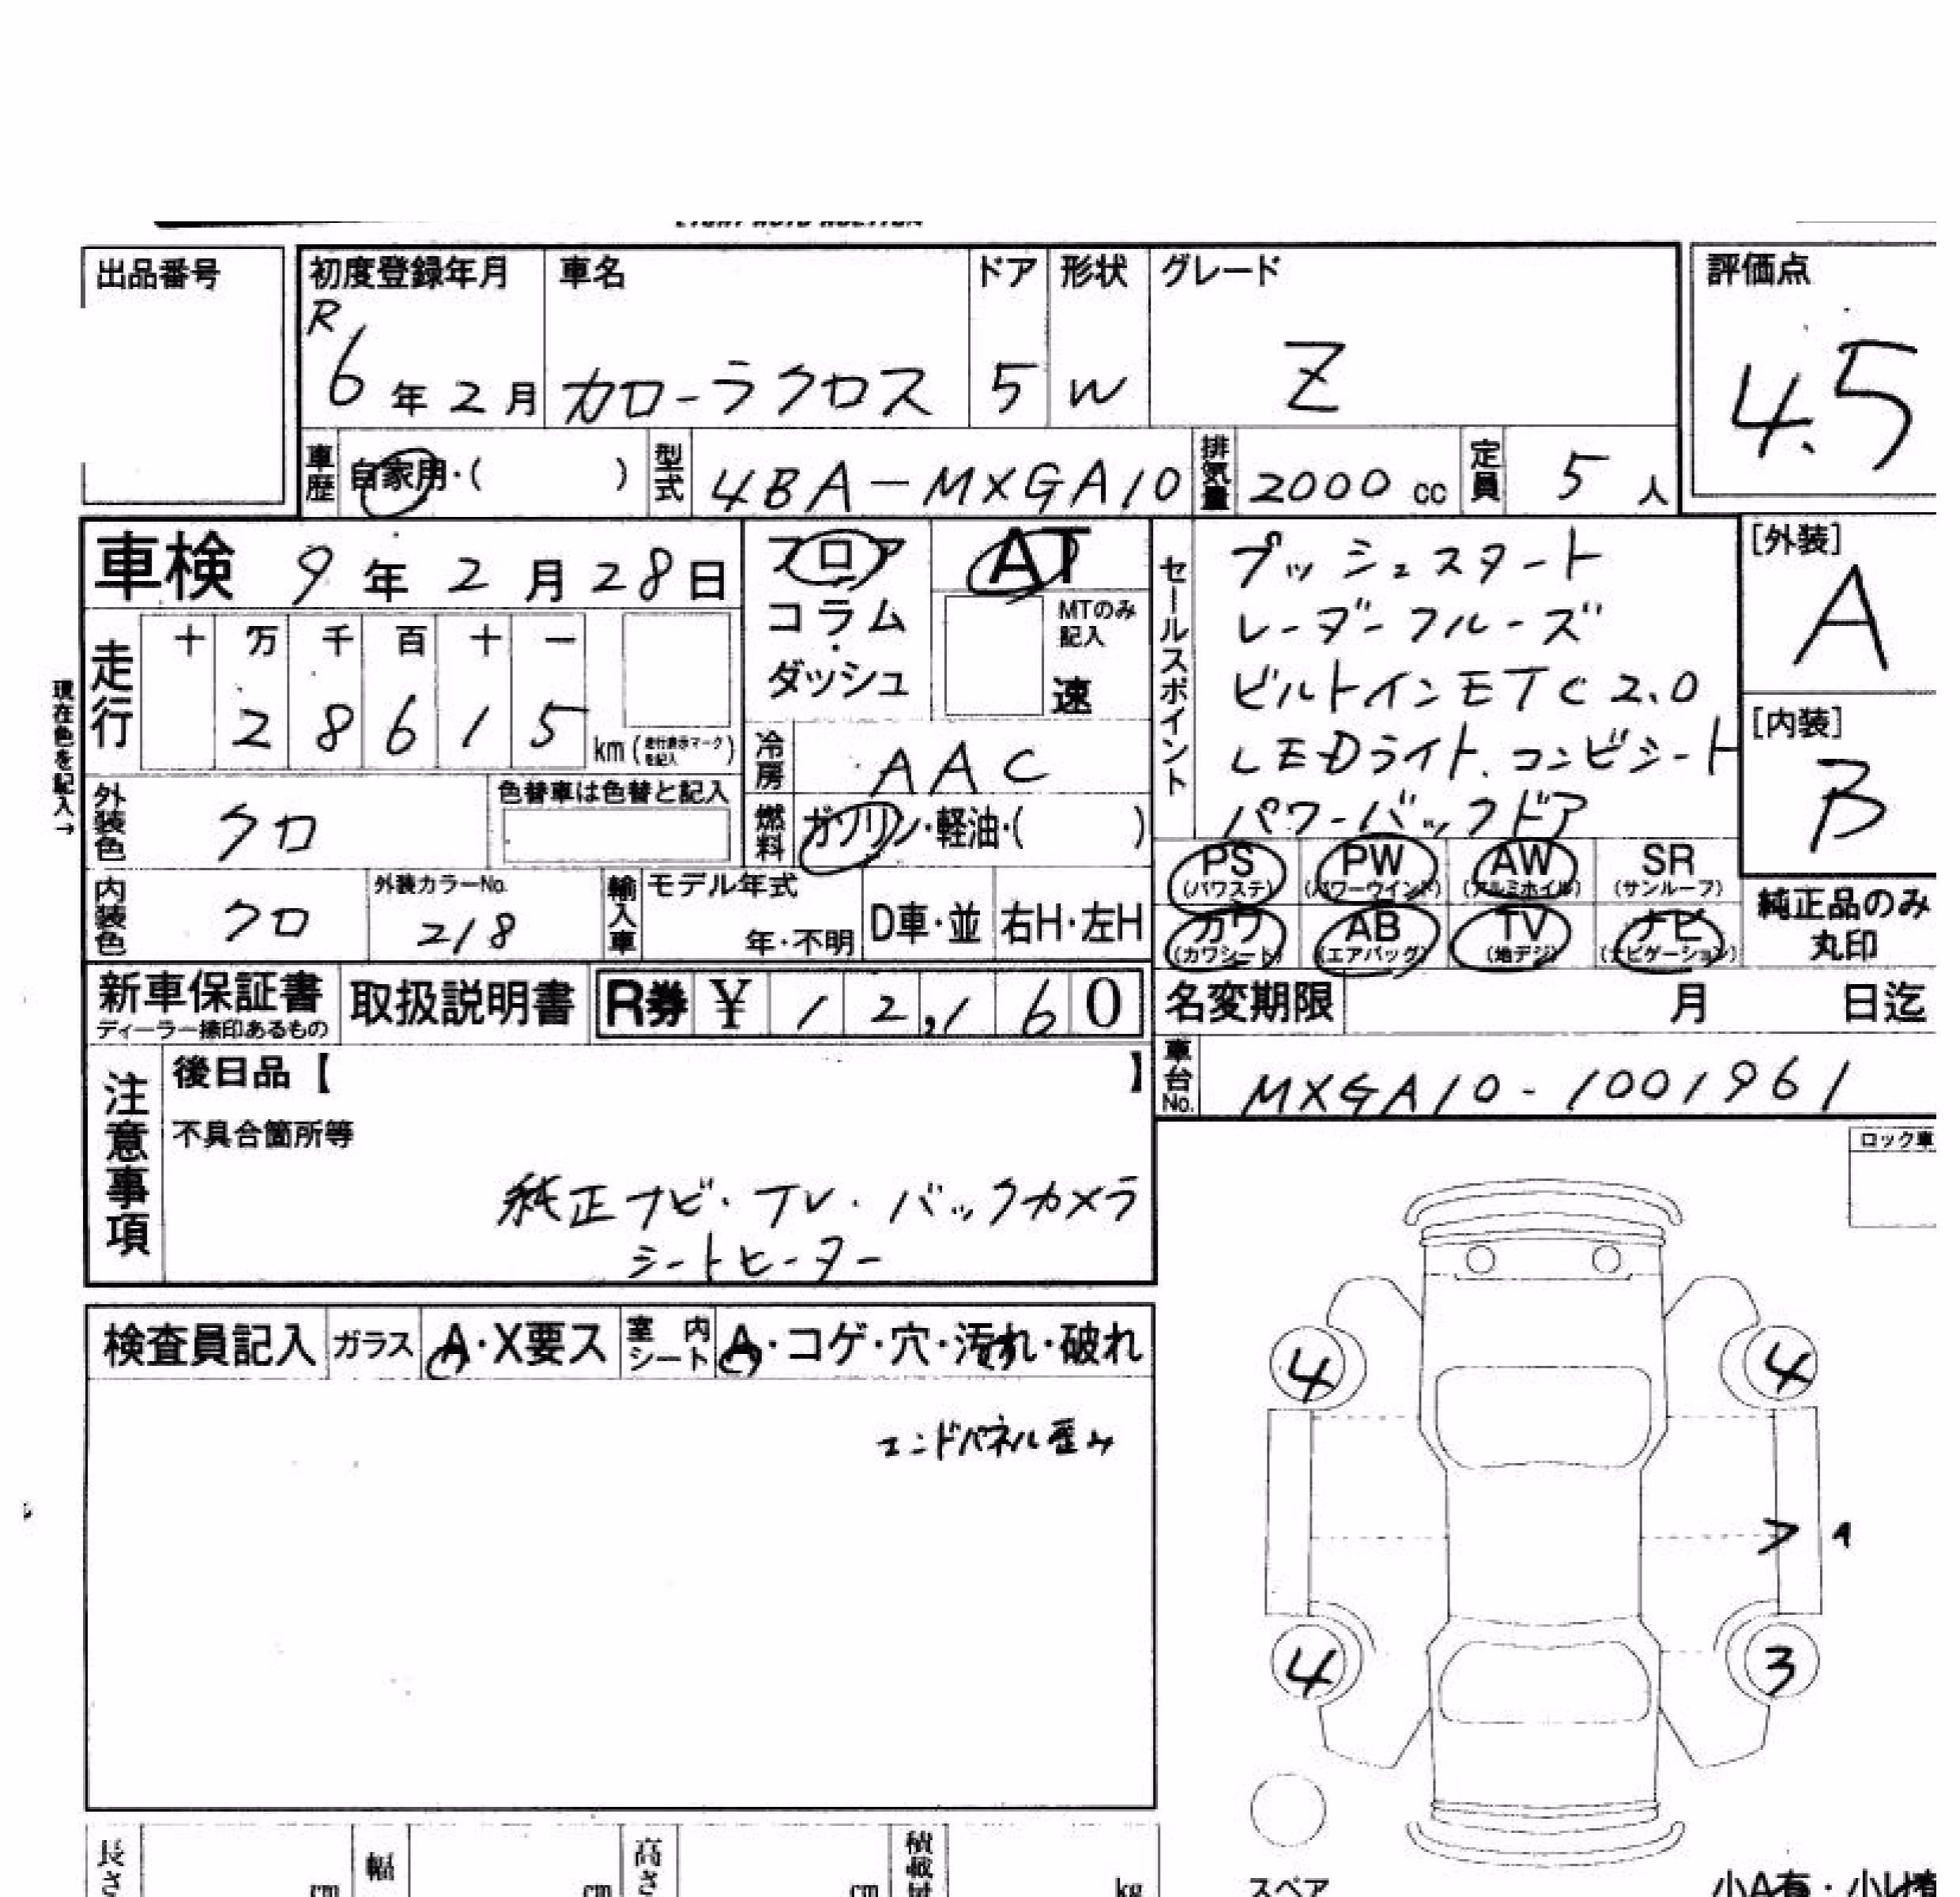 出品番号
初度登録年月 車名 ドア 形状 グレード 評価点
R
6年2月 カローラクロス 5 W Z 4.5
車歴 自家用・( ) 型式 4BA-MXGA10 排気量 2000cc 定員 5人
車検 9年2月28日 フロア AT セールスポイント プッシュスタート [外装]
コラム MTのみ記入 レーダークルーズ A
ダッシュ 速 ビルトインETC2.0
現在色を記入→
走行 十 万 千 百 十 一
2 8 6 1 5 km (走行表示マークを記入) LEDライト.コンビシート [内装]
冷房 AAC パワーバックドア B
外装色 クロ 色替車は色替と記入 燃料 ガソリン・軽油・( )
PS (パワステ) PW (パワーウインド) AW (アルミホイル) SR (サンルーフ)
内装色 クロ 外装カラーNo. 218 輸入車 モデル年式 年・不明 D車・並 右H・左H
カワ (カワシート) AB (エアバッグ) TV (地デジ) ナビ (ナビゲーション) 純正品のみ丸印
新車保証書 ディーラー捺印あるもの 取扱説明書 R券 ¥ 12,160 名変期限 月 日迄
注意事項 後日品【 】 車台No. MXGA10-1001961
不具合箇所等 ロック車
純正ナビ・TV・バックカメラ
シートヒーター
検査員記入 ガラス A・X要ス 室内シート A・コゲ・穴・汚れ・破れ
4 4
エンドパネル歪み
4 3
長さ cm 幅 cm 高さ cm 積載量 kg スペア 小A有・小U有